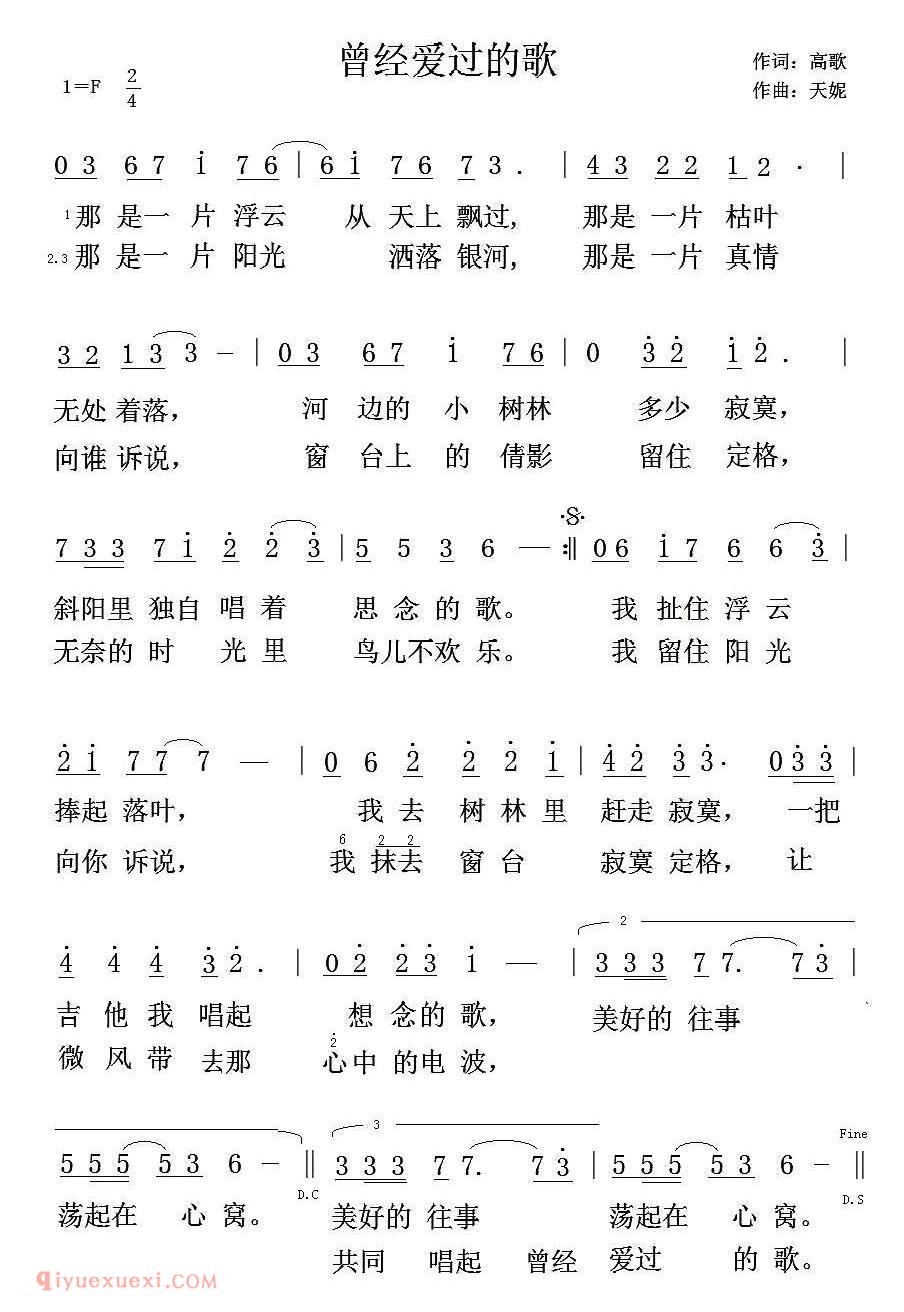 曾经爱过的歌
作词：高歌
1=F 2/4
作曲：天妮
03 67 1 76 | 61 76 73. | 43 22 12 · |
1 那 是一 片 浮云 从 天上 飘过, 那是 一片 枯叶
2.3 那 是一 片 阳光 洒落 银河, 那是 一片 真情
32 13 3 - | 03 67 1 76 | 0 32 12. |
无处 着落, 河 边的 小 树林 多少 寂寞,
向谁 诉说, 窗 台上 的 倩影 留住 定格,
·S·
733 71 2 2 3 | 5 5 3 6 — :‖ 06 17 6 6 3 |
斜阳里 独自 唱着 思念的歌。 我 扯住 浮云
无奈的 时 光里 鸟儿不欢 乐。 我 留住 阳光
21 77 7 — | 0 6 2 2 2 1 | 42 33· 033 |
捧起 落叶, 我去 树林里 赶走 寂寞, 一把
6 2 2
向你 诉说, 我抹去 窗台 寂寞 定格, 让
2
4 4 4 32. | 02 23 1 — | 333 77. 73 |
吉他我 唱起 想 念的 歌, 美好的 往事
2
微风带 去那 心中 的电 波,
3
Fine
555 53 6 - ‖ 333 77. 73 | 555 53 6 - ‖
D.C
D.S
荡起在 心 窝。 美好的 往事 荡起在 心 窝。
共同 唱起 曾经 爱过 的 歌。
qiyuexuexi.com